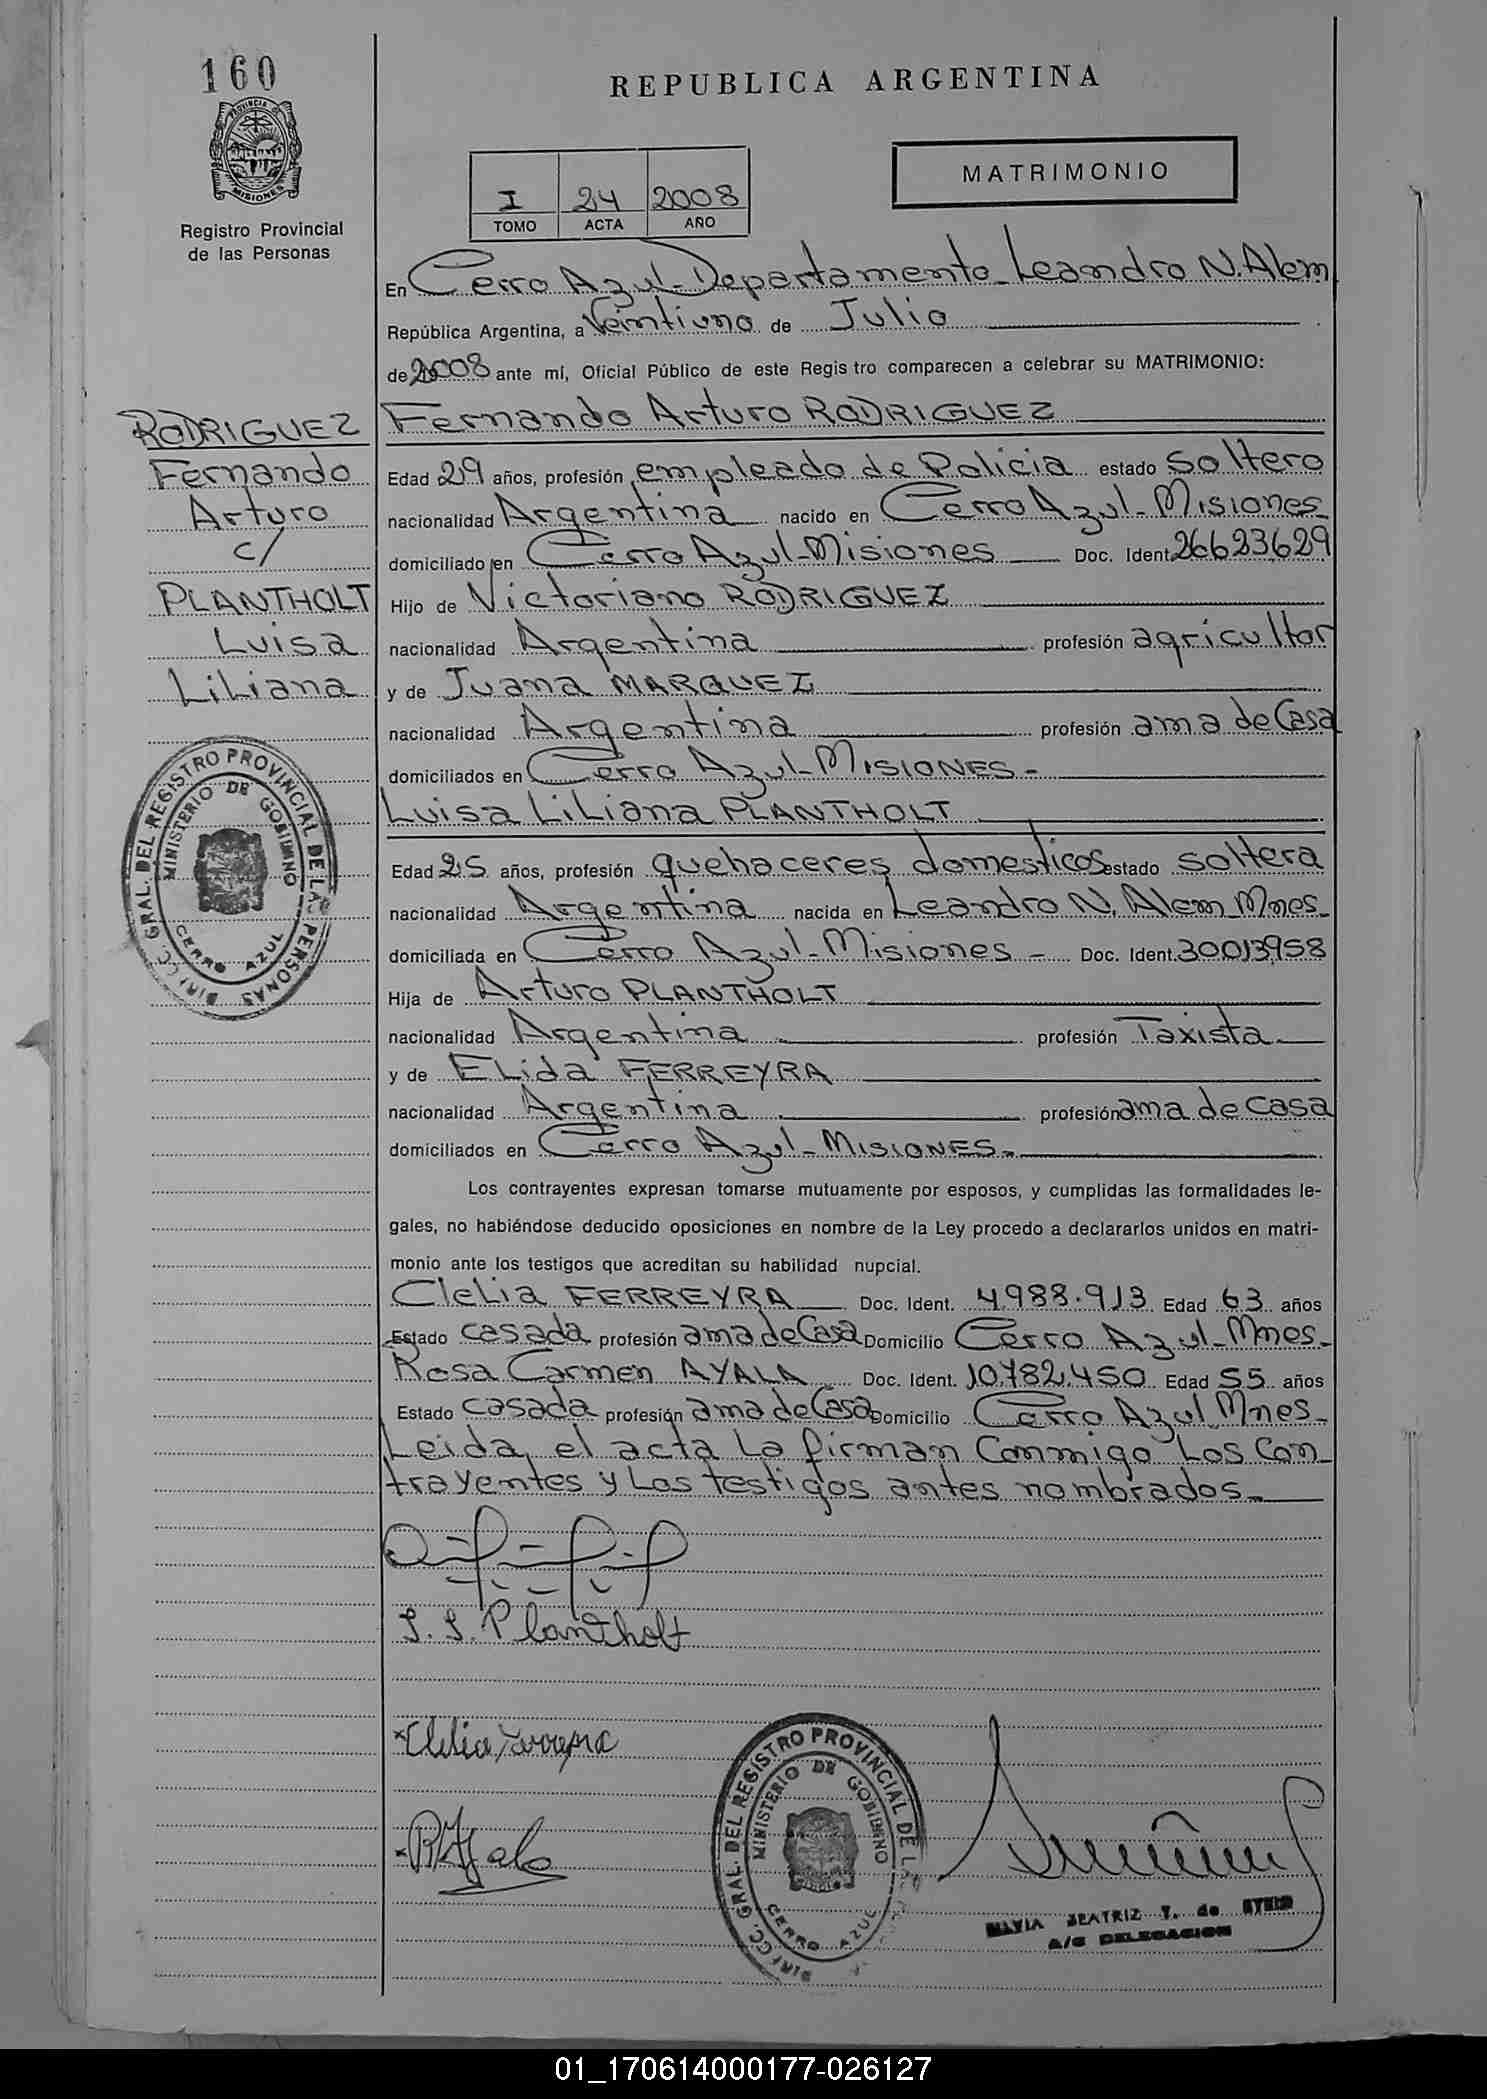 160
REPUBLICA ARGENTINA
PROVINCIA DE
MISIONES
Registro Provincial
de las Personas
I 24 2008
TOMO ACTA AÑO
MATRIMONIO
En Cerro Azul-Departamento-Leandro N. Alem
República Argentina, a Veintiuno de Julio
de 2008 ante mí, Oficial Público de este Registro comparecen a celebrar su MATRIMONIO:
RODRIGUEZ
Fernando
Arturo
c/
PLANTHOLT
Luisa
Liliana
Fernando Arturo RODRIGUEZ
Edad 29 años, profesión empleado de Policia estado soltero
nacionalidad Argentina nacido en Cerro Azul-Misiones
domiciliado en Cerro Azul-Misiones Doc. Ident. 26623629
Hijo de Victoriano RODRIGUEZ
nacionalidad Argentina profesión agricultor
y de Juana MARQUEZ
nacionalidad Argentina profesión ama de Casa
domiciliados en Cerro Azul-MISIONES-
Luisa Liliana PLANTHOLT
Edad 25 años, profesión quehaceres domesticos estado soltera
nacionalidad Argentina nacida en Leandro N. Alem Mnes-
domiciliada en Cerro Azul-Misiones - Doc. Ident. 30013958
Hija de Arturo PLANTHOLT
nacionalidad Argentina profesión Taxista
y de Elida FERREYRA
nacionalidad Argentina profesión ama de casa
domiciliados en Cerro Azul-MISIONES-
Los contrayentes expresan tomarse mutuamente por esposos, y cumplidas las formalidades le-
gales, no habiéndose deducido oposiciones en nombre de la Ley procedo a declararlos unidos en matri-
monio ante los testigos que acreditan su habilidad nupcial.
Clelia FERREYRA Doc. Ident. 4.988.913 Edad 63 años
Estado casada profesión ama de Casa Domicilio Cerro Azul-Mnes-
Rosa Carmen AYALA Doc. Ident. 10.782.450 Edad 55 años
Estado casada profesión ama de Casa Domicilio Cerro Azul Mnes-
Leida el acta la firman Conmigo Los Con-
trayentes y Los testigos antes nombrados-
DIR. GRAL. DEL REGISTRO PROVINCIAL DE LAS PERSONAS
MINISTERIO DE GOBIERNO
CERRO AZUL
L. L. Plantholt
Clelia Ferreyra
R Ayala
GRAL. DEL REGISTRO PROVINCIAL DE
MINISTERIO DE GOBIERNO
CERRO AZUL
BEATRIZ
A/C DELEGACION
01_170614000177-026127